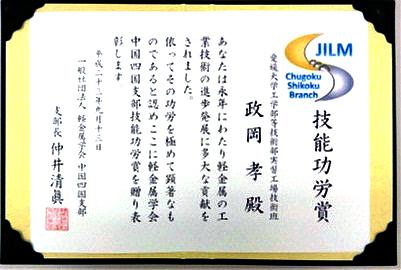 JILM
Chugoku
Shikoku
Branch
技能功労賞
愛媛大学工学部等技術部実習工場技術班
政岡孝殿
あなたは永年にわたり軽金属の工
業技術の進歩発展に多大な貢献を
されました。
依ってその功労を極めて顕著なも
のであると認めここに軽金属学会
中国四国支部技能功労賞を贈り表
彰します
平成二十三年九月十三日
一般社団法人 軽金属学会 中国四国支部
支部長 仲井清眞